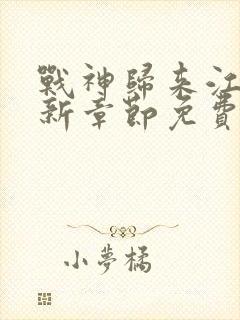 戰神歸來江
新章節免費
小夢橘